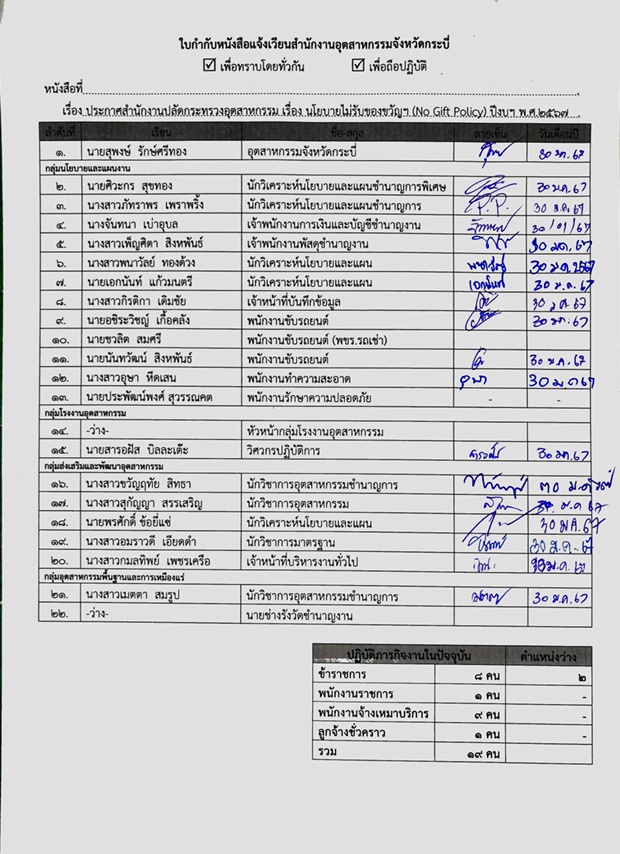 ใบกำกับหนังสือแจ้งเวียนสำนักงานอุตสาหกรรมจังหวัดกระบี่
☑ เพื่อทราบโดยทั่วกัน ☑ เพื่อถือปฏิบัติ
หนังสือที่
เรื่อง ประกาศสำนักงานปลัดกระทรวงอุตสาหกรรม เรื่อง นโยบายไม่รับของขวัญฯ (No Gift Policy) ปีงบฯ พ.ศ.๒๕๖๗
ลำดับที่ เรียน ชื่อ-สกุล ลายเซ็น วันเดือนปี
๑. นายสุพงษ์ รักษ์ศรีทอง อุตสาหกรรมจังหวัดกระบี่ 30 ม.ค. 67
กลุ่มนโยบายและแผนงาน
๒. นายศิวะกร สุขทอง นักวิเคราะห์นโยบายและแผนชำนาญการพิเศษ 30 ม.ค. 67
๓. นางสาวภัทราพร เพราพริ้ง นักวิเคราะห์นโยบายและแผนชำนาญการ P.P. 30 ม.ค. 67
๔. นางจันทนา เบ่าอุบล เจ้าพนักงานการเงินและบัญชีชำนาญงาน 30/01/67
๕. นางสาวเพ็ญศิตา สิงหพันธ์ เจ้าพนักงานพัสดุชำนาญงาน 30 ม.ค. 67
๖. นางสาวพนาวัลย์ ทองด้วง นักวิเคราะห์นโยบายและแผน 30 ม.ค. 2567
๗. นายเอกนันท์ แก้วมนตรี นักวิเคราะห์นโยบายและแผน เอกนันท์ 30 ม.ค. 67
๘. นางสาวกิรติกา เดิมชัย เจ้าหน้าที่บันทึกข้อมูล 30 ม.ค. 67
๙. นายอชิระวิชญ์ เกื้อคลัง พนักงานขับรถยนต์ 30 ม.ค. 67
๑๐. นายชวลิต สมศรี พนักงานขับรถยนต์ (พขร.รถเช่า)
๑๑. นายนันทวัฒน์ สิงหพันธ์ พนักงานขับรถยนต์ 30 ม.ค. 67
๑๒. นางสาวอุษา หีดเสน พนักงานทำความสะอาด อุษา 30 ม.ค 67
๑๓. นายประพัฒน์พงศ์ สุวรรณคต พนักงานรักษาความปลอดภัย - -
กลุ่มโรงงานอุตสาหกรรม
๑๔. -ว่าง- หัวหน้ากลุ่มโรงงานอุตสาหกรรม
๑๕. นายสารอฝัส บิลละเต๊ะ วิศวกรปฏิบัติการ 30 ม.ค. 67
กลุ่มส่งเสริมและพัฒนาอุตสาหกรรม
๑๖. นางสาวขวัญฤทัย สิทธา นักวิชาการอุตสาหกรรมชำนาญการ
๑๗. นางสาวสุกัญญา สรรเสริญ นักวิชาการอุตสาหกรรม
๑๘. นายพรศักดิ์ ช้อยี่แซ่ นักวิเคราะห์นโยบายและแผน 30 ม.ค. 67
๑๙. นางสาวอมราวดี เอียดดำ นักวิชาการมาตรฐาน 30 ม.ค. 67
๒๐. นางสาวกมลทิพย์ เพชรเครือ เจ้าหน้าที่บริหารงานทั่วไป
กลุ่มอุตสาหกรรมพื้นฐานและการเหมืองแร่
๒๑. นางสาวเมตตา สมรูป นักวิชาการอุตสาหกรรมชำนาญการ 30 ม.ค. 67
๒๒. -ว่าง- นายช่างรังวัดชำนาญงาน
ปฏิบัติภารกิจงานในปัจจุบัน ตำแหน่งว่าง
ข้าราชการ ๘ คน ๒
พนักงานราชการ ๑ คน -
พนักงานจ้างเหมาบริการ ๙ คน -
ลูกจ้างชั่วคราว ๑ คน -
รวม ๑๙ คน